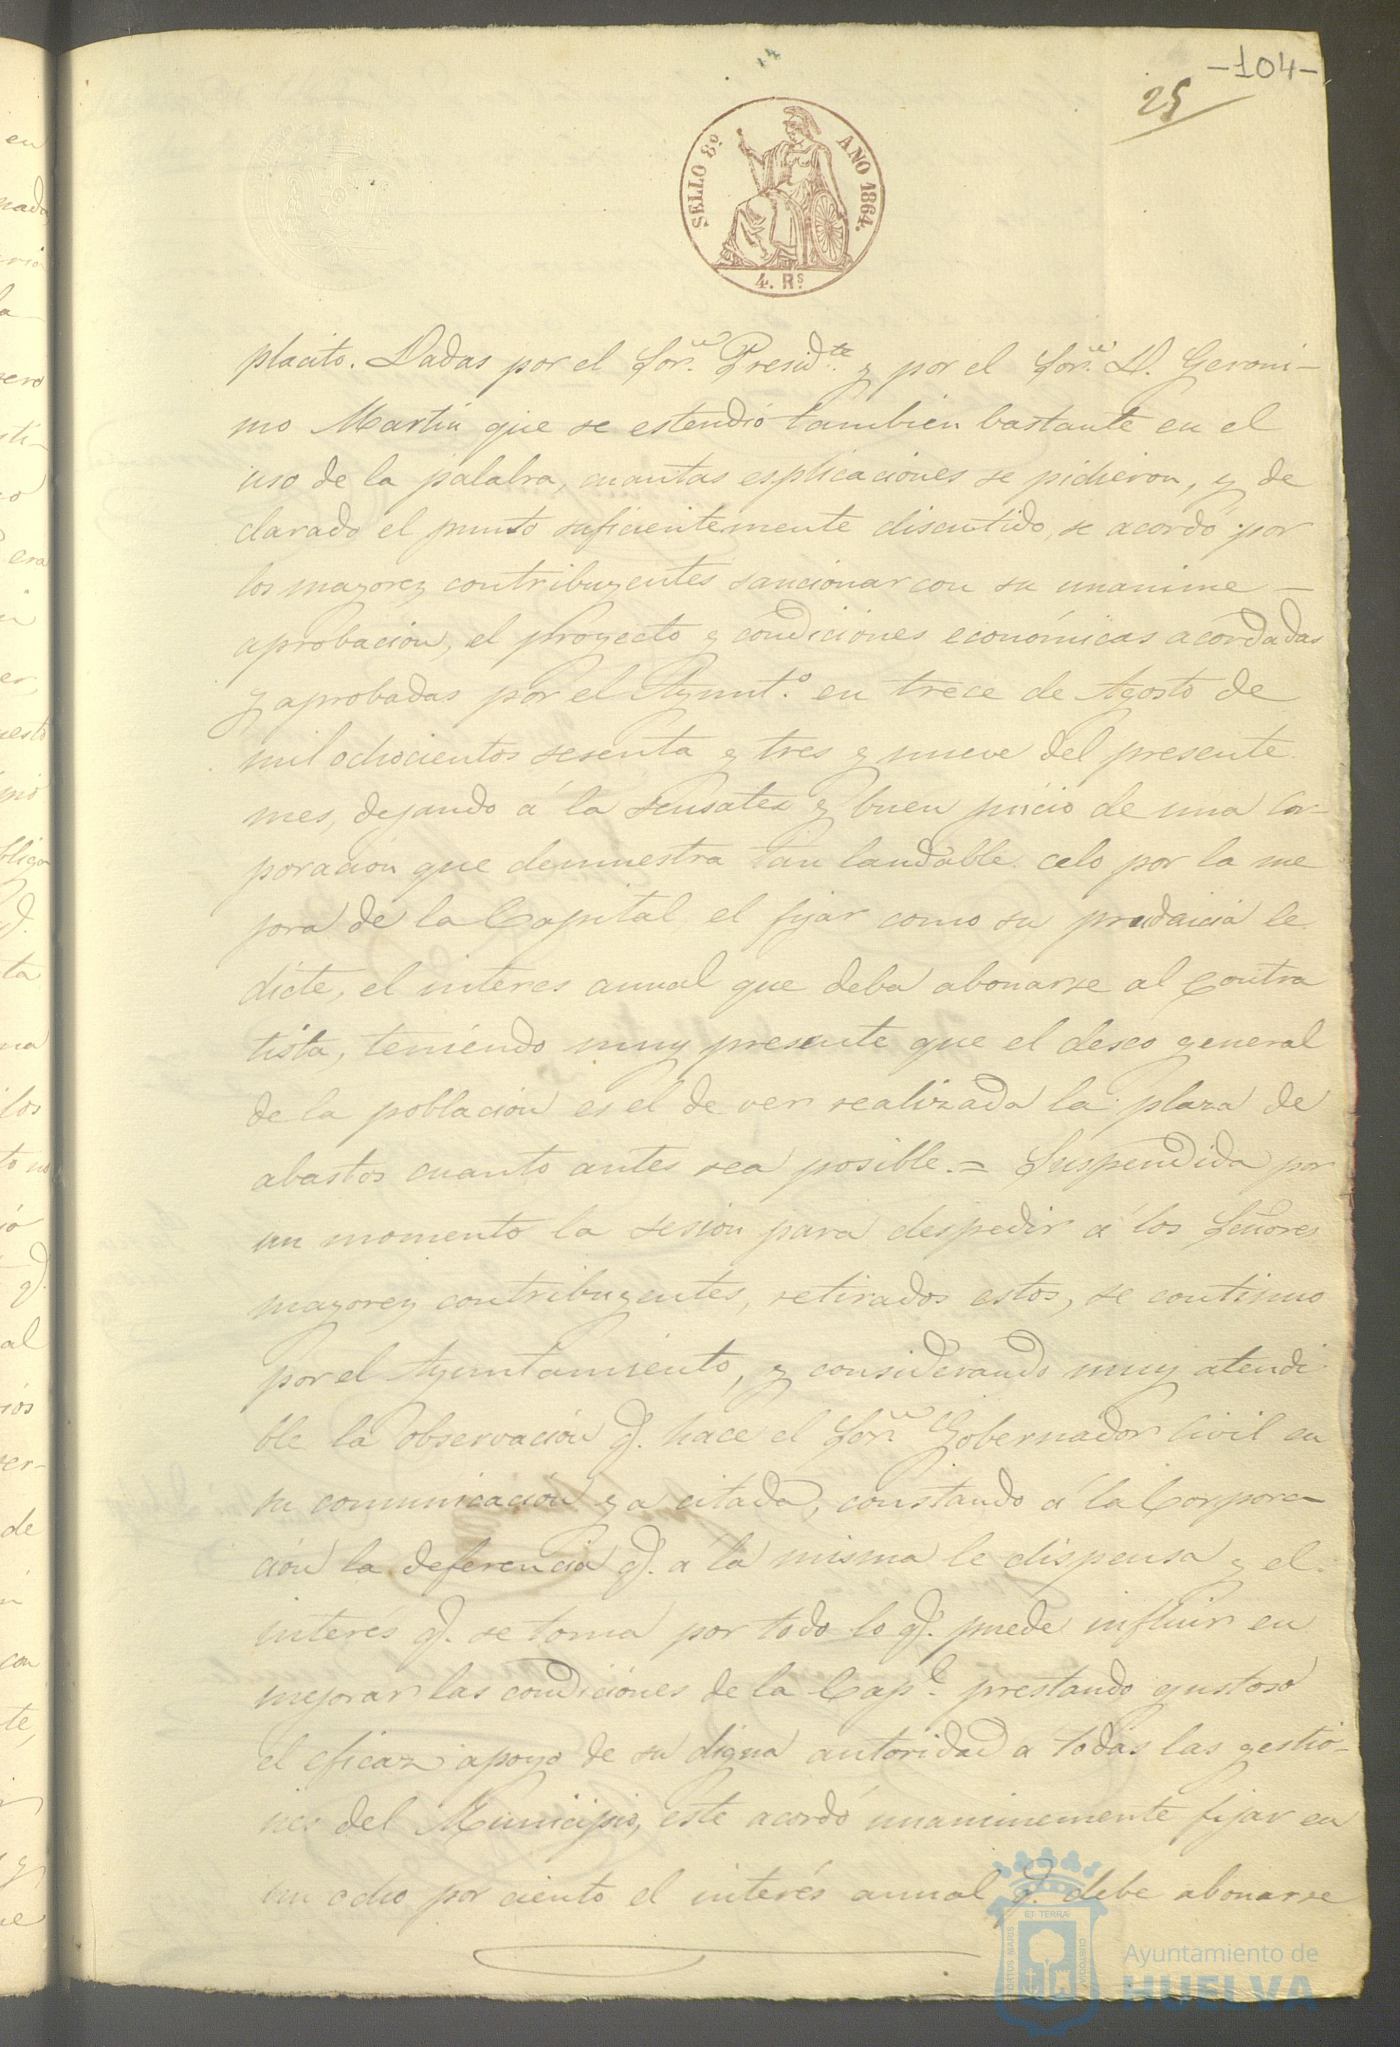 -104-
25
SELLO 8º AÑO 1864.
4. Rs
placito. Dadas por el Sor. Presid.te y por el Sor. D. Geroni-
mo Martin que se estendió tambien bastante en el
uso de la palabra, cuantas esplicaciones se pidieron, y de
clarado el punto suficientemente discutido, se acordó por
los mayores contribuyentes sancionar con su unanime -
aprobacion, el proyecto y condiciones económicas acordadas
y aprobadas por el Ayunt.º en trece de Agosto de
mil ochocientos sesenta y tres y nueve del presente
mes, dejando á la sensatez y buen juicio de una Cor-
poracion que demuestra tan laudable celo por la me
jora de la Capital el fijar como su prudencia le
dicte, el interes anual que deba abonarse al contra
tista, teniendo muy presente que el deseo general
de la poblacion es el de ver realizada la plaza de
abastos cuanto antes sea posible.= Suspendida por
un momento la sesion para despedir á los Señores
mayores contribuyentes, retirados estos, se continuo
por el Ayuntamiento, y considerando muy atendi
ble la observacion q. hace el Sor. Gobernador Civil en
su comunicacion ya citada, constando á la Corpora-
cion la deferencia q. á la misma le dispensa y el
interés q. se toma por todo lo q. puede influir en
mejorar las condiciones de la Cap.l prestando gustoso
el eficaz apoyo de su digna autoridad a todas las gestio-
nes del Municipio, este acordó unanimemente fijar en
un ocho por ciento el interés anual q. debe abonarse
PORTUS MARIS ET TERRAE CUSTODIA
Ayuntamiento de
HUELVA